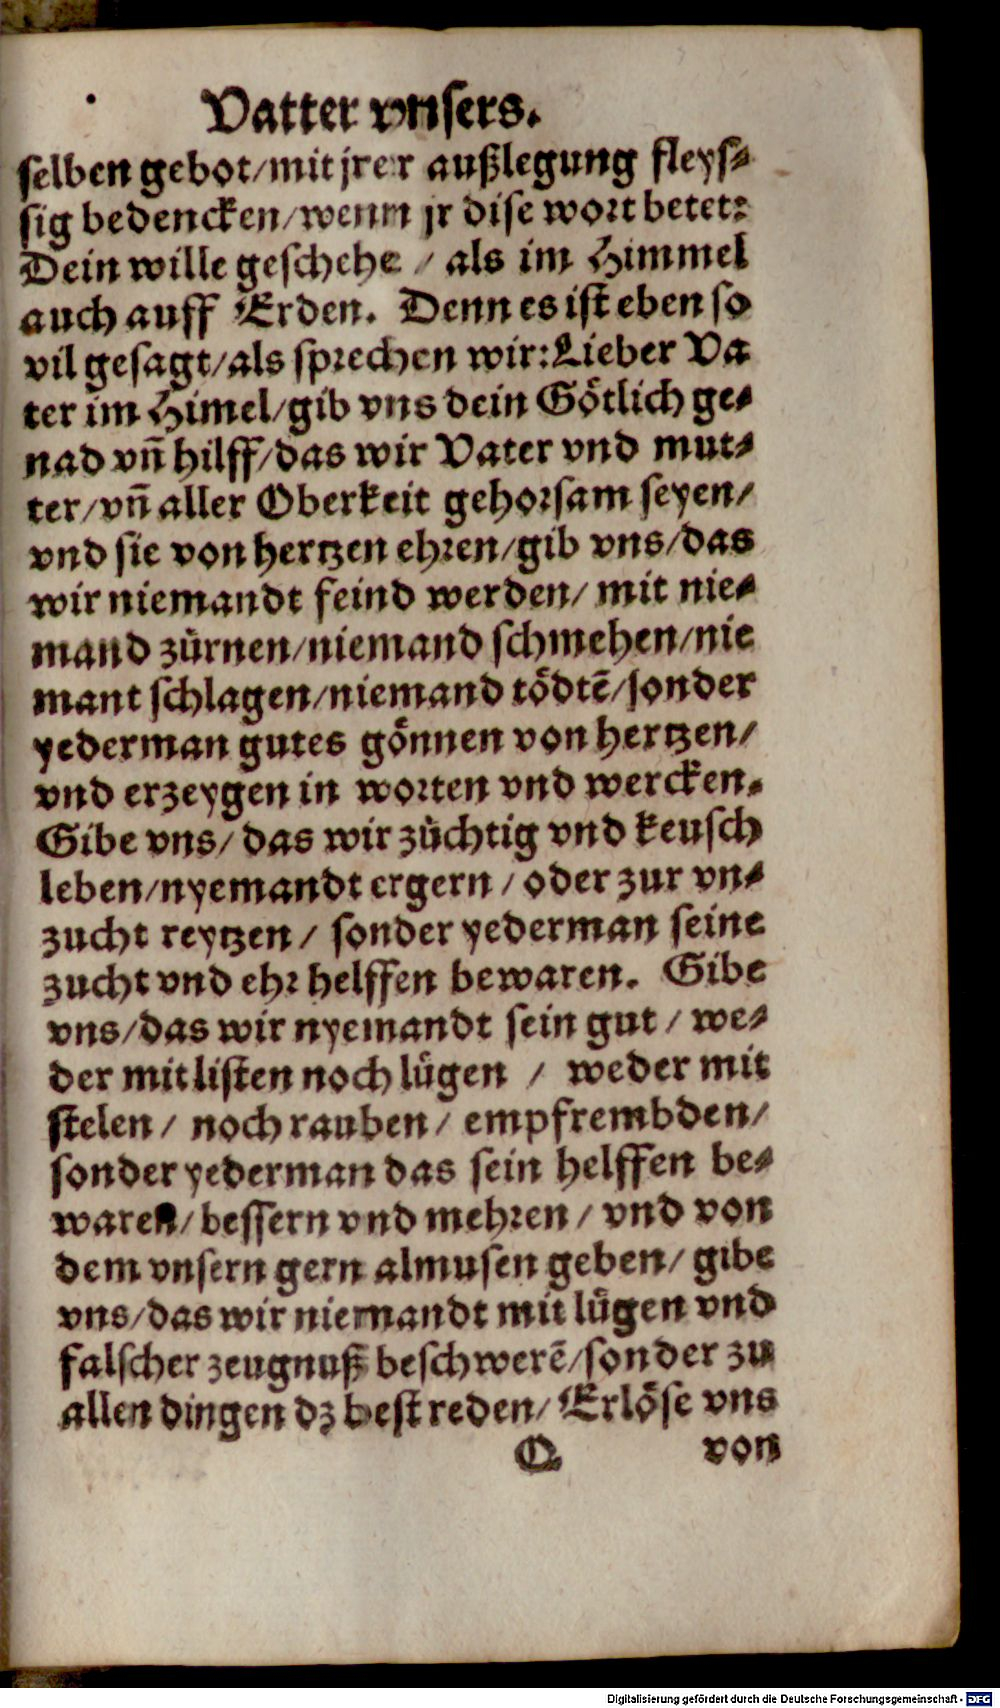 Vatter vnsers.
selben gebot/mit jrer außlegung fleys⸗
sig bedencken/wenn jr dise wort betet:
Dein wille geschehe / als im Himmel
auch auff Erden. Denn es ist eben so
vil gesagt/als sprechen wir: Lieber Va
ter im Himel/gib vns dein Götlich ge⸗
nad vñ hilff/das wir Vater vnd mut⸗
ter/vñ aller Oberkeit gehorsam seyen/
vnd sie von hertzen ehren/gib vns/das
wir niemandt feind werden/ mit nie⸗
mand zürnen/niemand schmehen/nie
mant schlagen/niemand tödtē/sonder
yederman gutes gönnen von hertzen/
vnd erzeygen in worten vnd wercken.
Gibe vns/ das wir züchtig vnd keusch
leben/nyemandt ergern / oder zur vn⸗
zucht reytzen / sonder yederman seine
zucht vnd ehr helffen bewaren. Gibe
vns/das wir nyemandt sein gut / we⸗
der mit listen noch lügen / weder mit
stelen / noch rauben / empfrembden/
sonder yederman das sein helffen be⸗
waren/ bessern vnd mehren / vnd von
dem vnsern gern almusen geben/ gibe
vns/das wir niemandt mit lügen vnd
falscher zeugnuß beschwerē/sonder zu
allen dingen dz best reden/ Erlöse vns
Q von
Digitalisierung gefördert durch die Deutsche Forschungsgemeinschaft - DFG